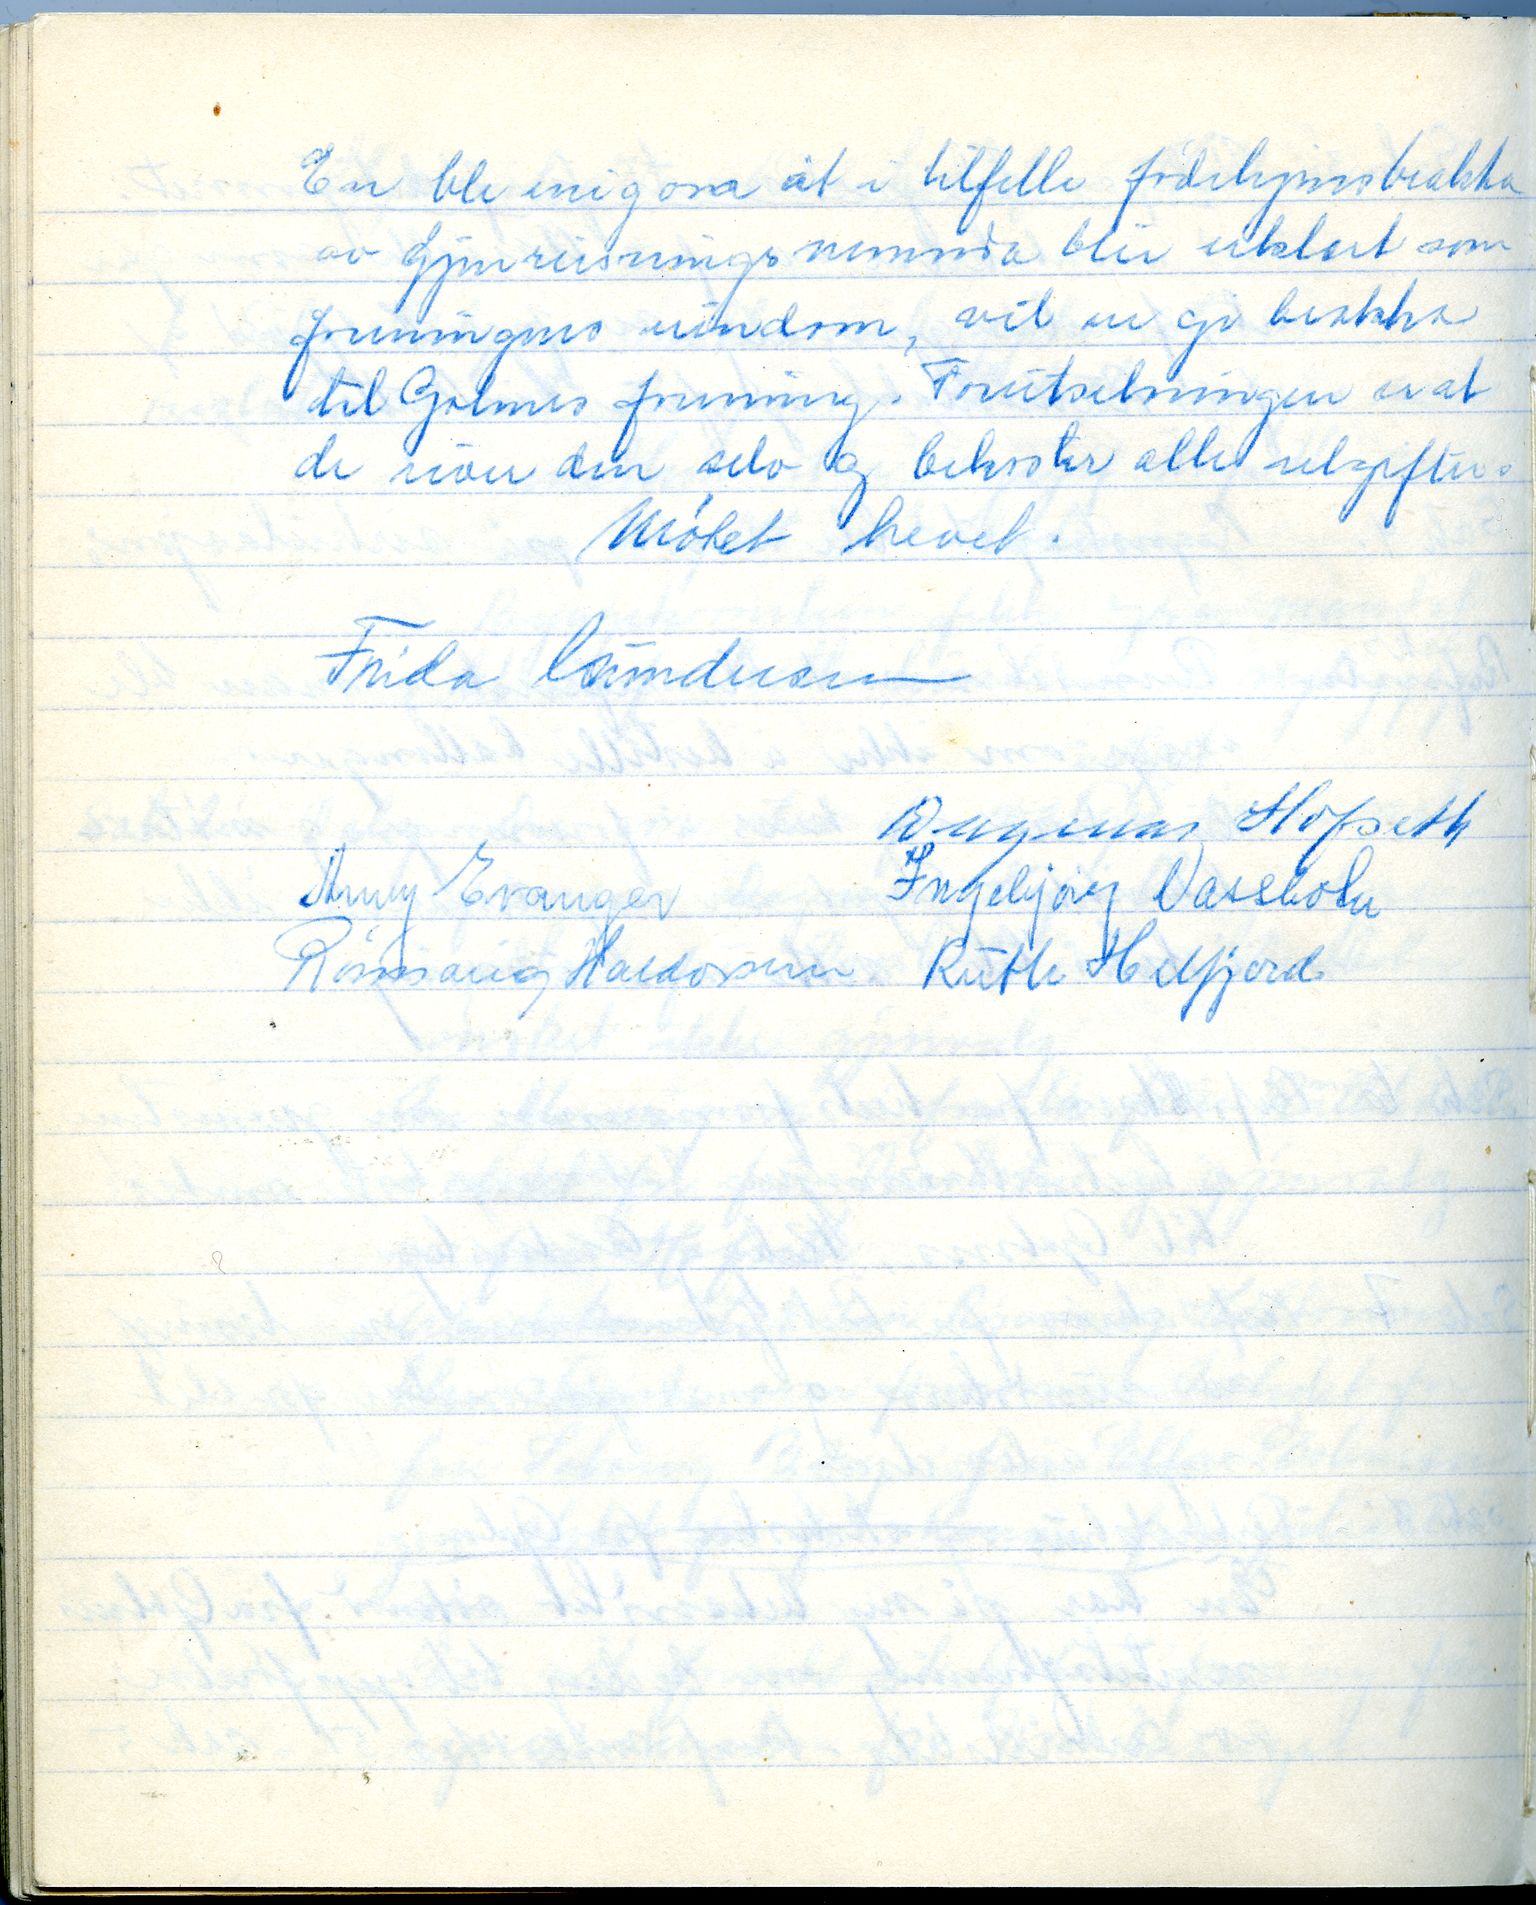 En ble enig om at i tilfelle fødehjemsbrakka
av Gjenreisningsnemnda blir erklært som
foreningens eiendom, vil en gi brakka
til Galnes forening. Forutsetningen er at
de river den selv og bekoster alle utgifter.
Møtet hevet.
Frida Gundersen
Dagmar Hofseth
Anny Evanger Ingebjørg Vassbotn
Haldorsen Ruth Helfjord